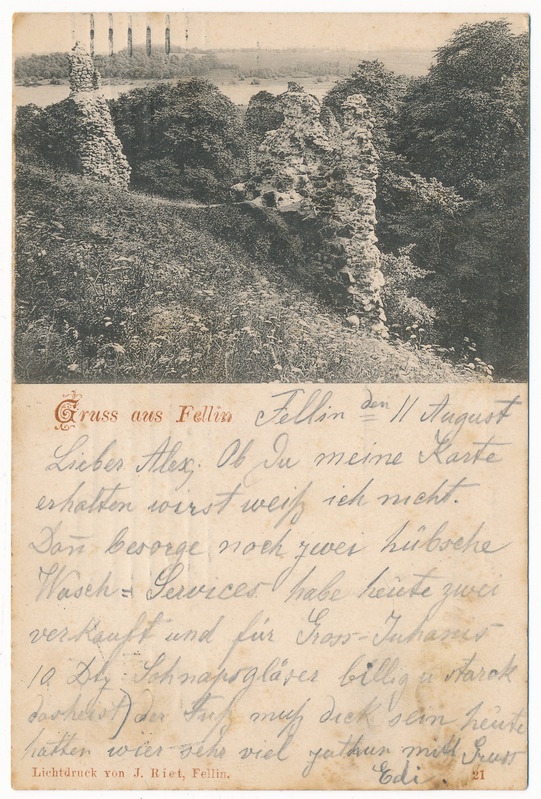 Gruss aus Fellin Fellin den 11 August
Lieber Alex; Ob Du meine Karte
erhalten wirst weiß ich nicht.
Dañ besorge noch zwei hübsche
Wasch= Services habe heute zwei
verkauft und für Gross-Juhanis
10 Dtz. Schnapsgläser billig u starck
dasheist) der Fuß muß dick sein heute
hatten wier sehr viel zuthun mitt Gruss
Edi.
Lichtdruck von J. Riet, Fellin. 21